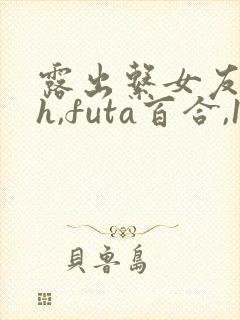 露出繫女友
h,futa百合,l
貝魯島